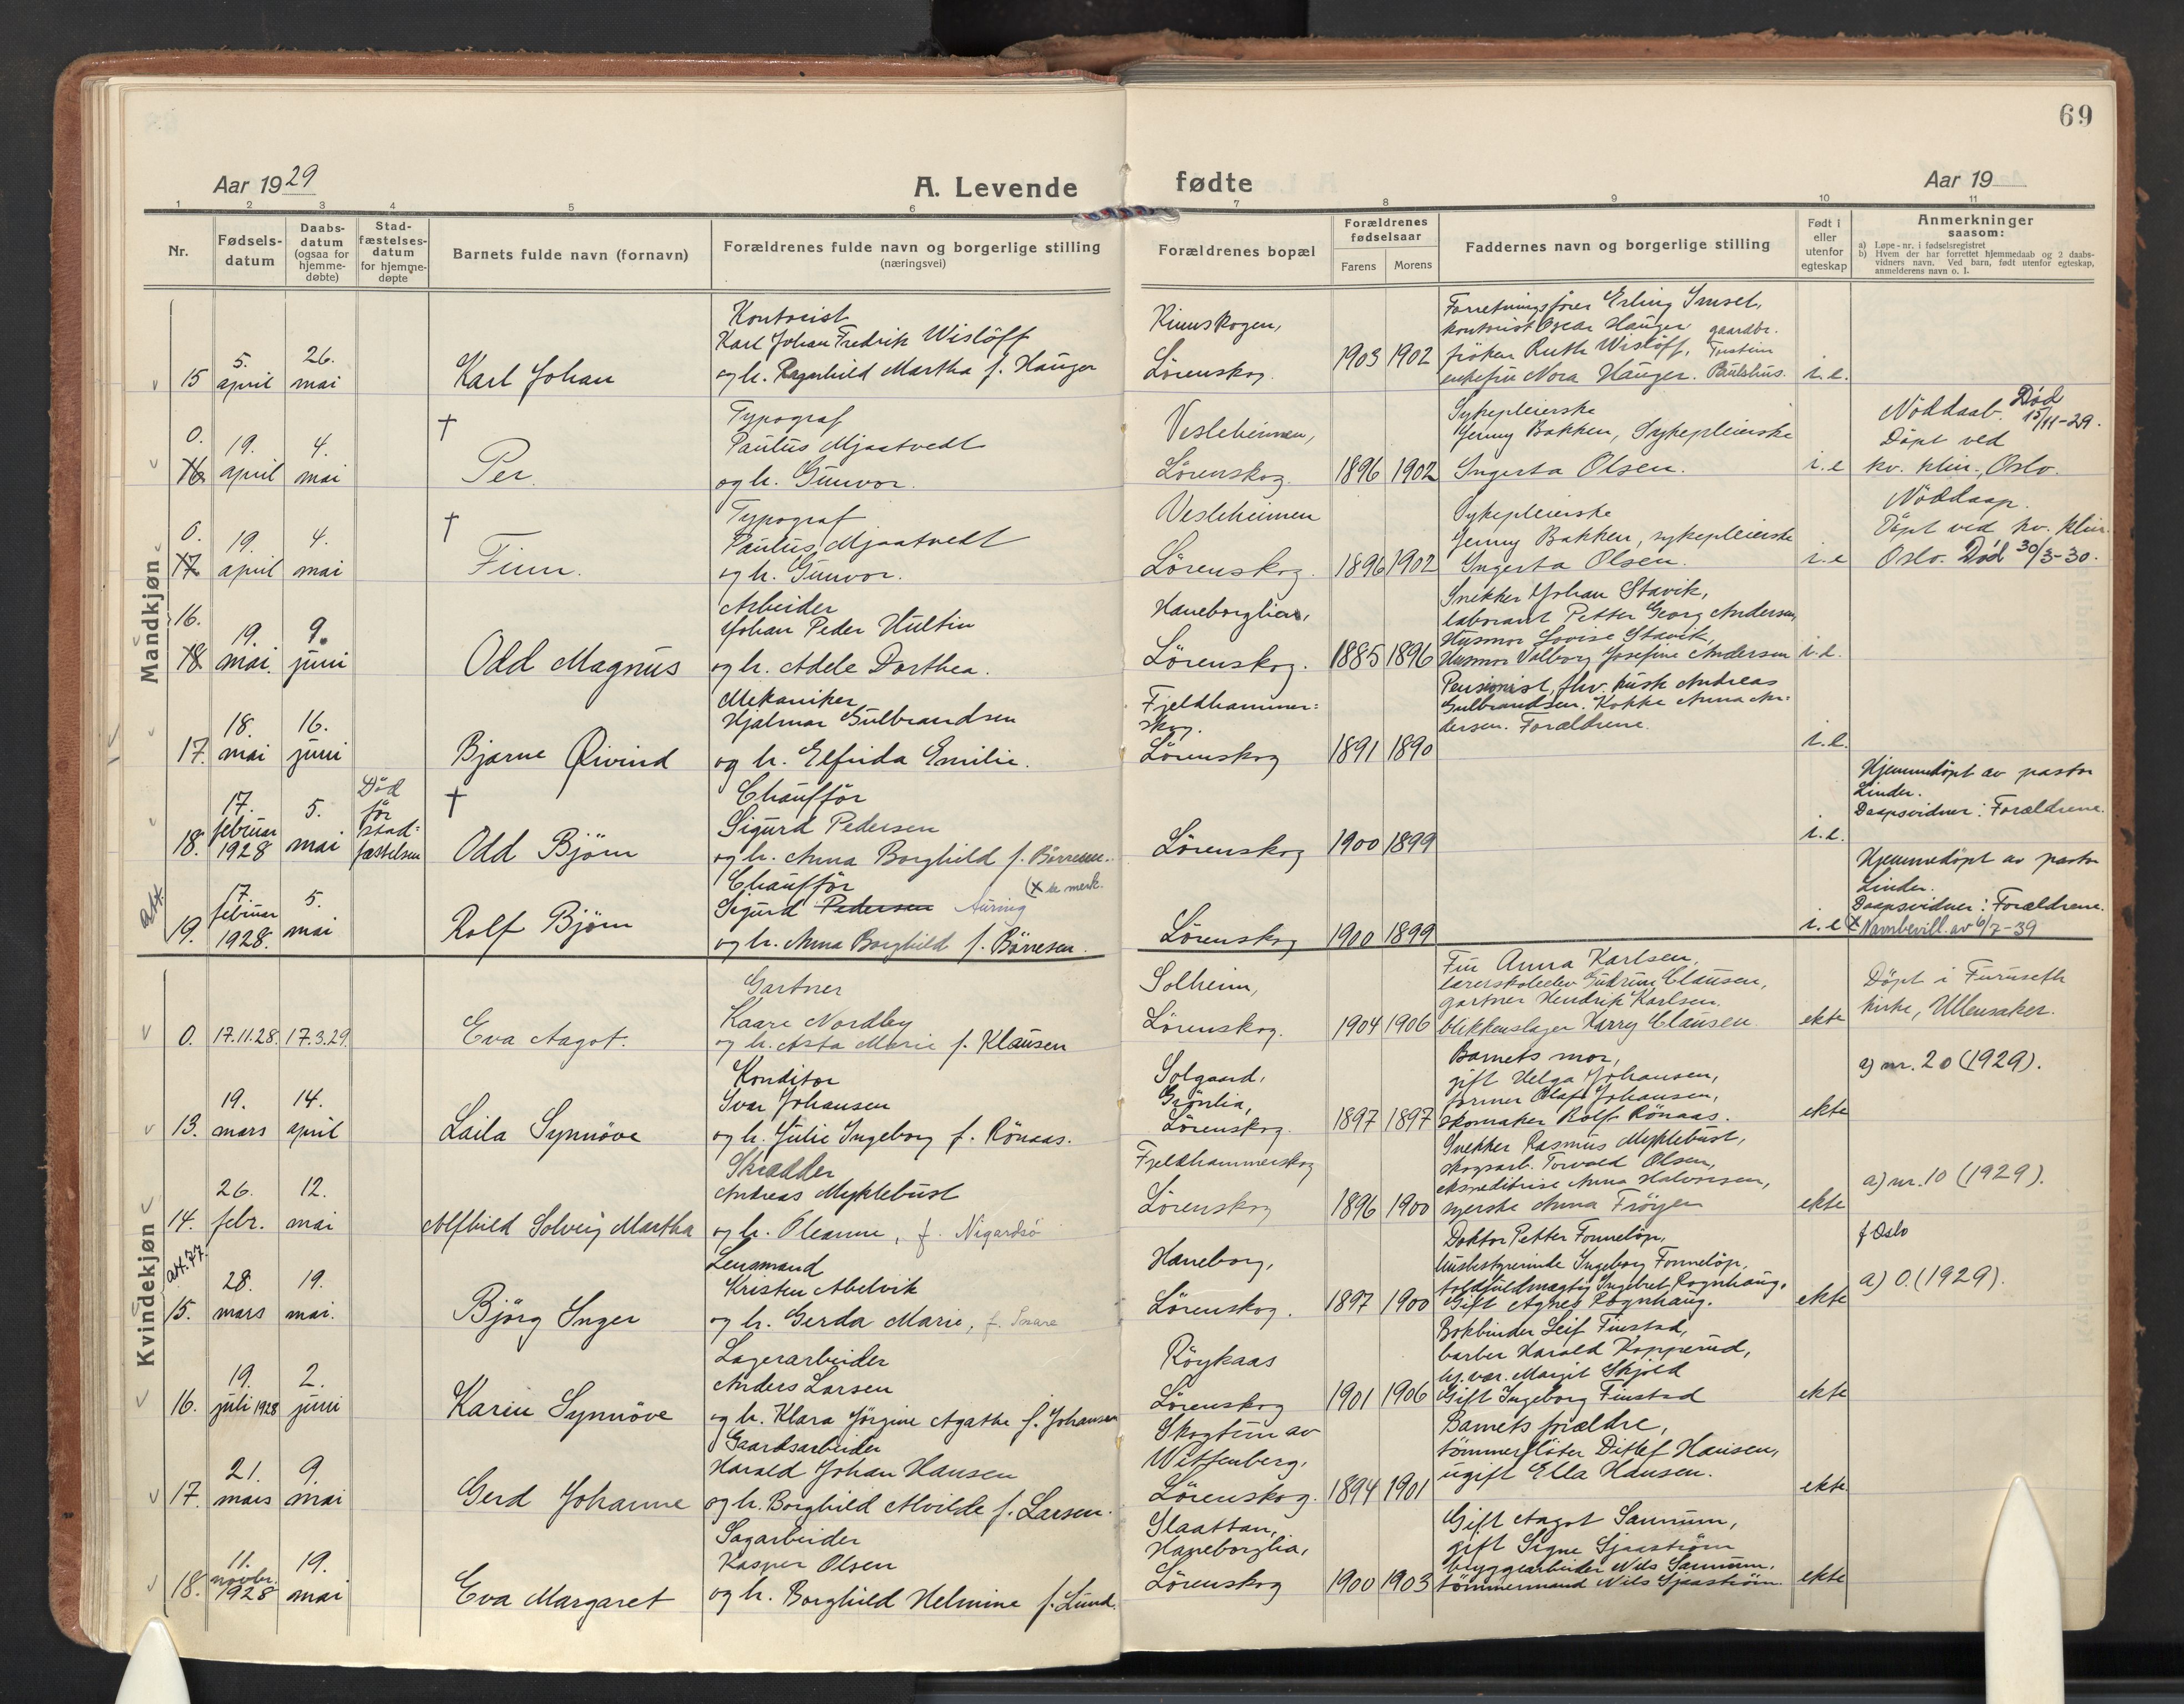 69
Aar 1929
A. Levende
fødte
Aar 19
1 2 3 4 5 6 7 8 9 10 11
Nr.
Fødsels-
datum
Daabs-
datum
(ogsaa for
hjemme-
døbte)
Stad-
fæstelses-
datum
for hjemme-
døpte
Barnets fulde navn (fornavn)
Forældrenes fulde navn og borgerlige stilling
(næringsvei)
Forældrenes bopæl
Forældrenes
fødselsaar
Farens Morens
Faddernes navn og borgerlige stilling
Født i
eller
utenfor
egteskap
Anmerkninger
saasom:
a) Løpe-nr. i fødselsregistret
b) Hvem der har forrettet hjemmedaab og 2 daabs-
vidners navn. Ved barn, født utenfor egteskap,
anmelderens navn o. l.
Mandkjøn
15
5.
april
26.
mai
Karl Johan
Kontorist
Karl Johan Fredrik Wislöff
og h. Ragnhild Martha f. Hauger
Lörenskog.
1903 1902
Forretningsfører Erling Imset,
kontorist Oscar Hauger. gaardbr.
fröken Ruth Wislöff,
enkefru Nora Hauger.
i.e.
0.
16
19.
april
4.
mai
†
Per.
Typograf
Paulus Mjaatvedt
og h. Gunvor.
Vesleheimen,
Lörenskog.
1896 1902
Sykepleierske
Jenny Bakken, Sykepleierske
Ingerta Olsen.
i.e
Nöddaab. Död
15/11-29.
Döpt ved
kv. klin., Oslo.
0.
17
19.
april
4.
mai
†
Finn.
Typograf
Paulus Mjaatvedt
og h. Gunvor.
Vesleheimen
Lörenskog.
1896 1902
Sykepleierske
Jenny Bakken, sykepleierske
Ingerta Olsen.
i.e
Nöddaap.
Döpt ved kv. klin.
Oslo. Död 30/3-30.
16.
18
19.
mai.
9.
juni
Odd Magnus
Arbeider
Johan Peder Hultin
og h. Adele Dorthea.
Haneborglia,
Lörenskog.
1885 1896
Snikker Johan Stavik,
laborant Petter Georg Andersen,
Husmor Lovise Stavik,
Husmor Valborg Josefine Andersen
i.e.
17.
18.
mai
16.
juni
Bjarne Øivind
Mekaniker
Hjalmar Gulbrandsen
og h. Elfrida Emilie.
Fjeldhammer=
skog.
Lörenskog
1891 1890
Pensionist, fhv. kusk Andreas
Gulbrandsen. Kokke Anna An=
dersen. Forældrene.
i.e.
18.
17.
februar
1928
5.
mai
Död
för
stad=
fæstelsen
†
Odd Björn
Chaufför
Sigurd Pedersen
og h. Anna Borghild f. Börresen.
Lörenskog
1900 1899
i.e.
Hjemmedöpt av pastor
Linder.
Daapsvidner: Forældrene.
att.
19.
17.
februar
1928.
5.
mai
Rolf Björn
Chaufför
(x se merk.
Sigurd Pedersen Auring
og h. Anna Borghild f. Börresen.
Lörenskog
1900 1899
i.e
Hjemmedöpt av pastor
Linder.
Daapsvidner: Forældrene.
x Namnbevill. av 6/7-39
Kvindekjøn
0.
17.11.28.
17.3.29.
Eva Aagot.
Gartner
Kaare Nordby
og h. Asta Marie f. Klausen
Solheim,
Lörenskog.
1904 1906
Fru Anna Karlsen,
lærerskoleelev Gudrun Clausen,
gartner Hendrik Karlsen.
blikkenslager Harry Clausen.
ekte
Döpt i Furuseth
kirke, Ullensaker.
13.
19.
mars
14.
april
Laila Synnöve
Konditor
Ivar Johansen
og h. Julie Ingeborg f. Rönaas.
Solgaard,
Grönlia,
Lörenskog.
1897 1897
Barnets mor,
gift Helga Johansen,
former Olaf Johansen,
skomaker Rolf Rönaas.
ekte
a) nr. 20 (1929).
14.
26.
febr.
12.
mai
Alfhild Solveig Martha
Skrædder
Andreas Myklebust
og h. Oleanne, f. Nigardsö
Fjeldhammerskog
Lörenskog
1896 1900
Snekker Rasmus Myklebust,
skogsarb. Torvald Olsen,
ekspeditrise Anna Halvorsen,
syerske Anna Fröyen
ekte
a) nr. 10 (1929).
att. 77.
15.
28.
mars
19.
mai.
Björg Inger
Lensmand
Kristen Abelvik
og h. Gerda Marie,
Haneborg,
Lörenskog.
1897 1900
Doktor Petter Fonnelöp,
husbestyrerinde Ingeborg Fonnelöp,
toldfuldmægtig Ingebret Rognhaug.
Gift Agnes Rognhaug.
ekte
f Oslo
a) 0. (1929).
16.
19.
juli 1928
2.
juni
Karin Synnöve
Lagerarbeider
Anders Larsen
og h. Klara Jörgine Agathe f. Johansen
Röykaas
Lörenskog
1901 1906
Bokbinder Leif Finstad,
barber Harald Kopperud,
Margit Skjold
Gift Ingeborg Finstad
ekte
17.
21.
mars
9.
mai
Gerd Johanne
Gaardsarbeider
Harald Johan Hansen
og h. Borghild Alvilde f. Larsen.
Skogtun av
Wittenberg,
Lörenskog.
1894 1901
Barnets forældre,
tömmerflöter Ditlef Hansen,
ugift Ella Hansen.
ekte
18.
11.
novbr.
1928
19.
mai
Eva Margaret
Sagarbeider
Kasper Olsen
og h. Borghild Helmine f. Lund.
Slaattan,
Haneborglia,
Lörenskog
1900 1903
Gift Aagot Sannum,
gift Signe Sjaaström
bryggearbeider Nils Sannum,
tömmermand Nils Sjaaström.
ekte